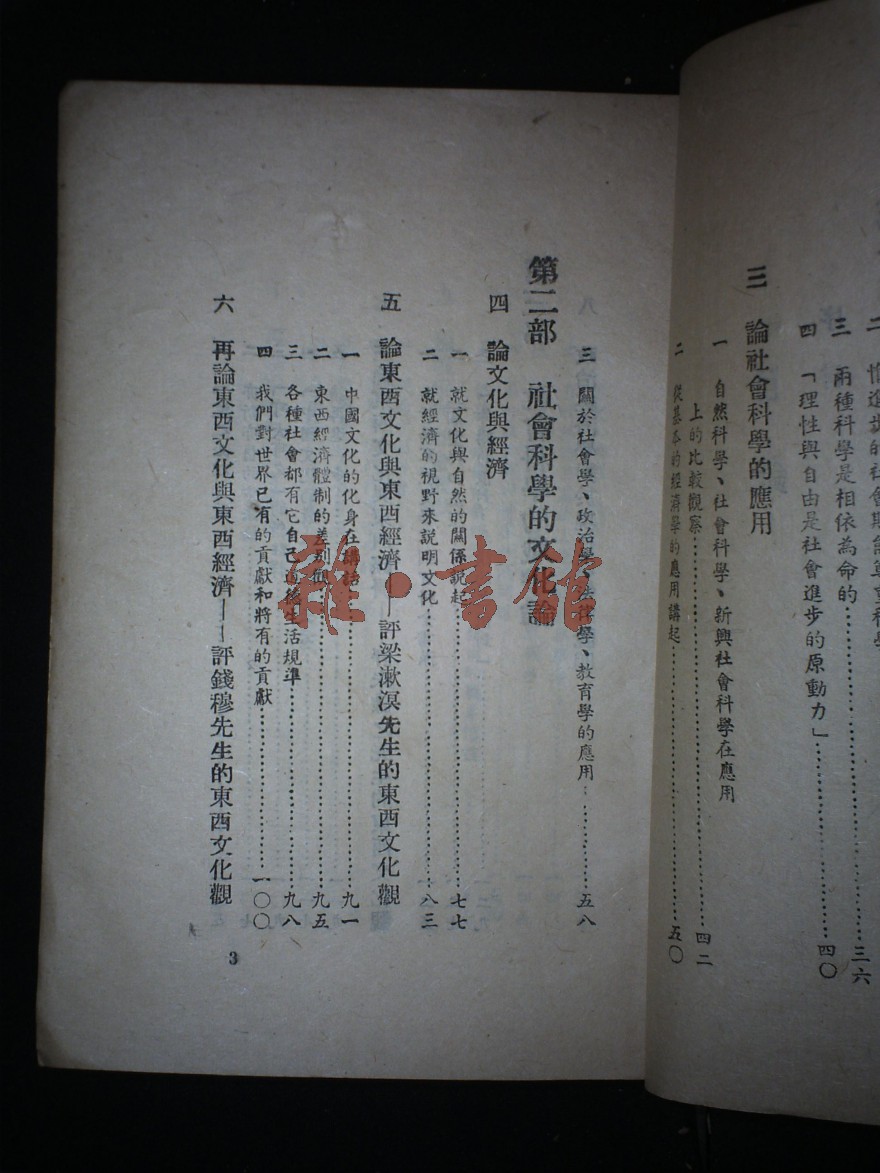 三 兩種科學是相依為命的……三六
四 「理性與自由是社會進步的原動力」……四〇
三 論社會科學的應用
一 自然科學、社會科學、新興社會科學在應用
上的比較觀察……四二
二 從基本的經濟學的應用講起……五〇
三 關於社會學、政治學、法律學、教育學的應用……五八
第二部 社會科學的文化論
四 論文化與經濟
一 就文化與自然的關係說起……七七
二 就經濟的視野來說明文化……八三
五 論東西文化與東西經濟——評梁漱溟先生的東西文化觀
一 中國文化的化身在講話……九一
二 東西經濟體制的差別觀……九五
三 各種社會都有它自己的生活規準……九八
四 我們對世界已有的貢獻和將有的貢獻……一〇〇
六 再論東西文化與東西經濟——評錢穆先生的東西文化觀
3
雜·書館